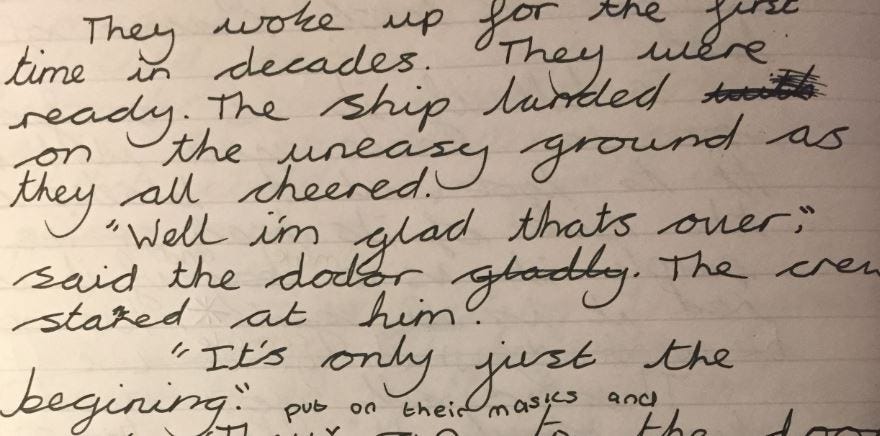 They woke up for the first
time in decades. They were
ready. The ship landed
on the uneasy ground as
they all cheered.
"Well i'm glad thats over,"
said the doctor gladly. The crew
stared at him.
"It's only just the
begining."
put on their masks and
to the